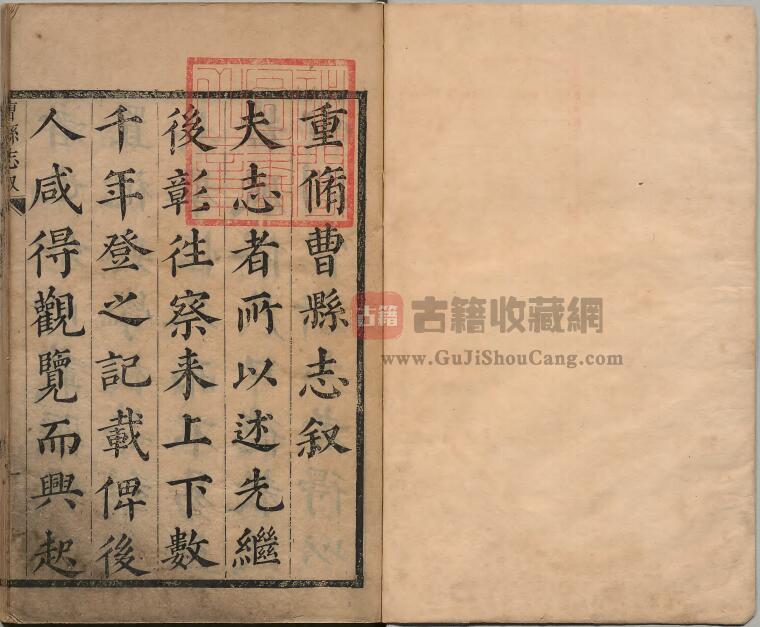 重脩曹縣志叙
夫志者所以述先繼
後彰徃察来上下數
千年登之記載俾後
人咸得觀覽而興起
曹縣志叙
古籍
古籍收藏網
www.GuJiShouCang.com